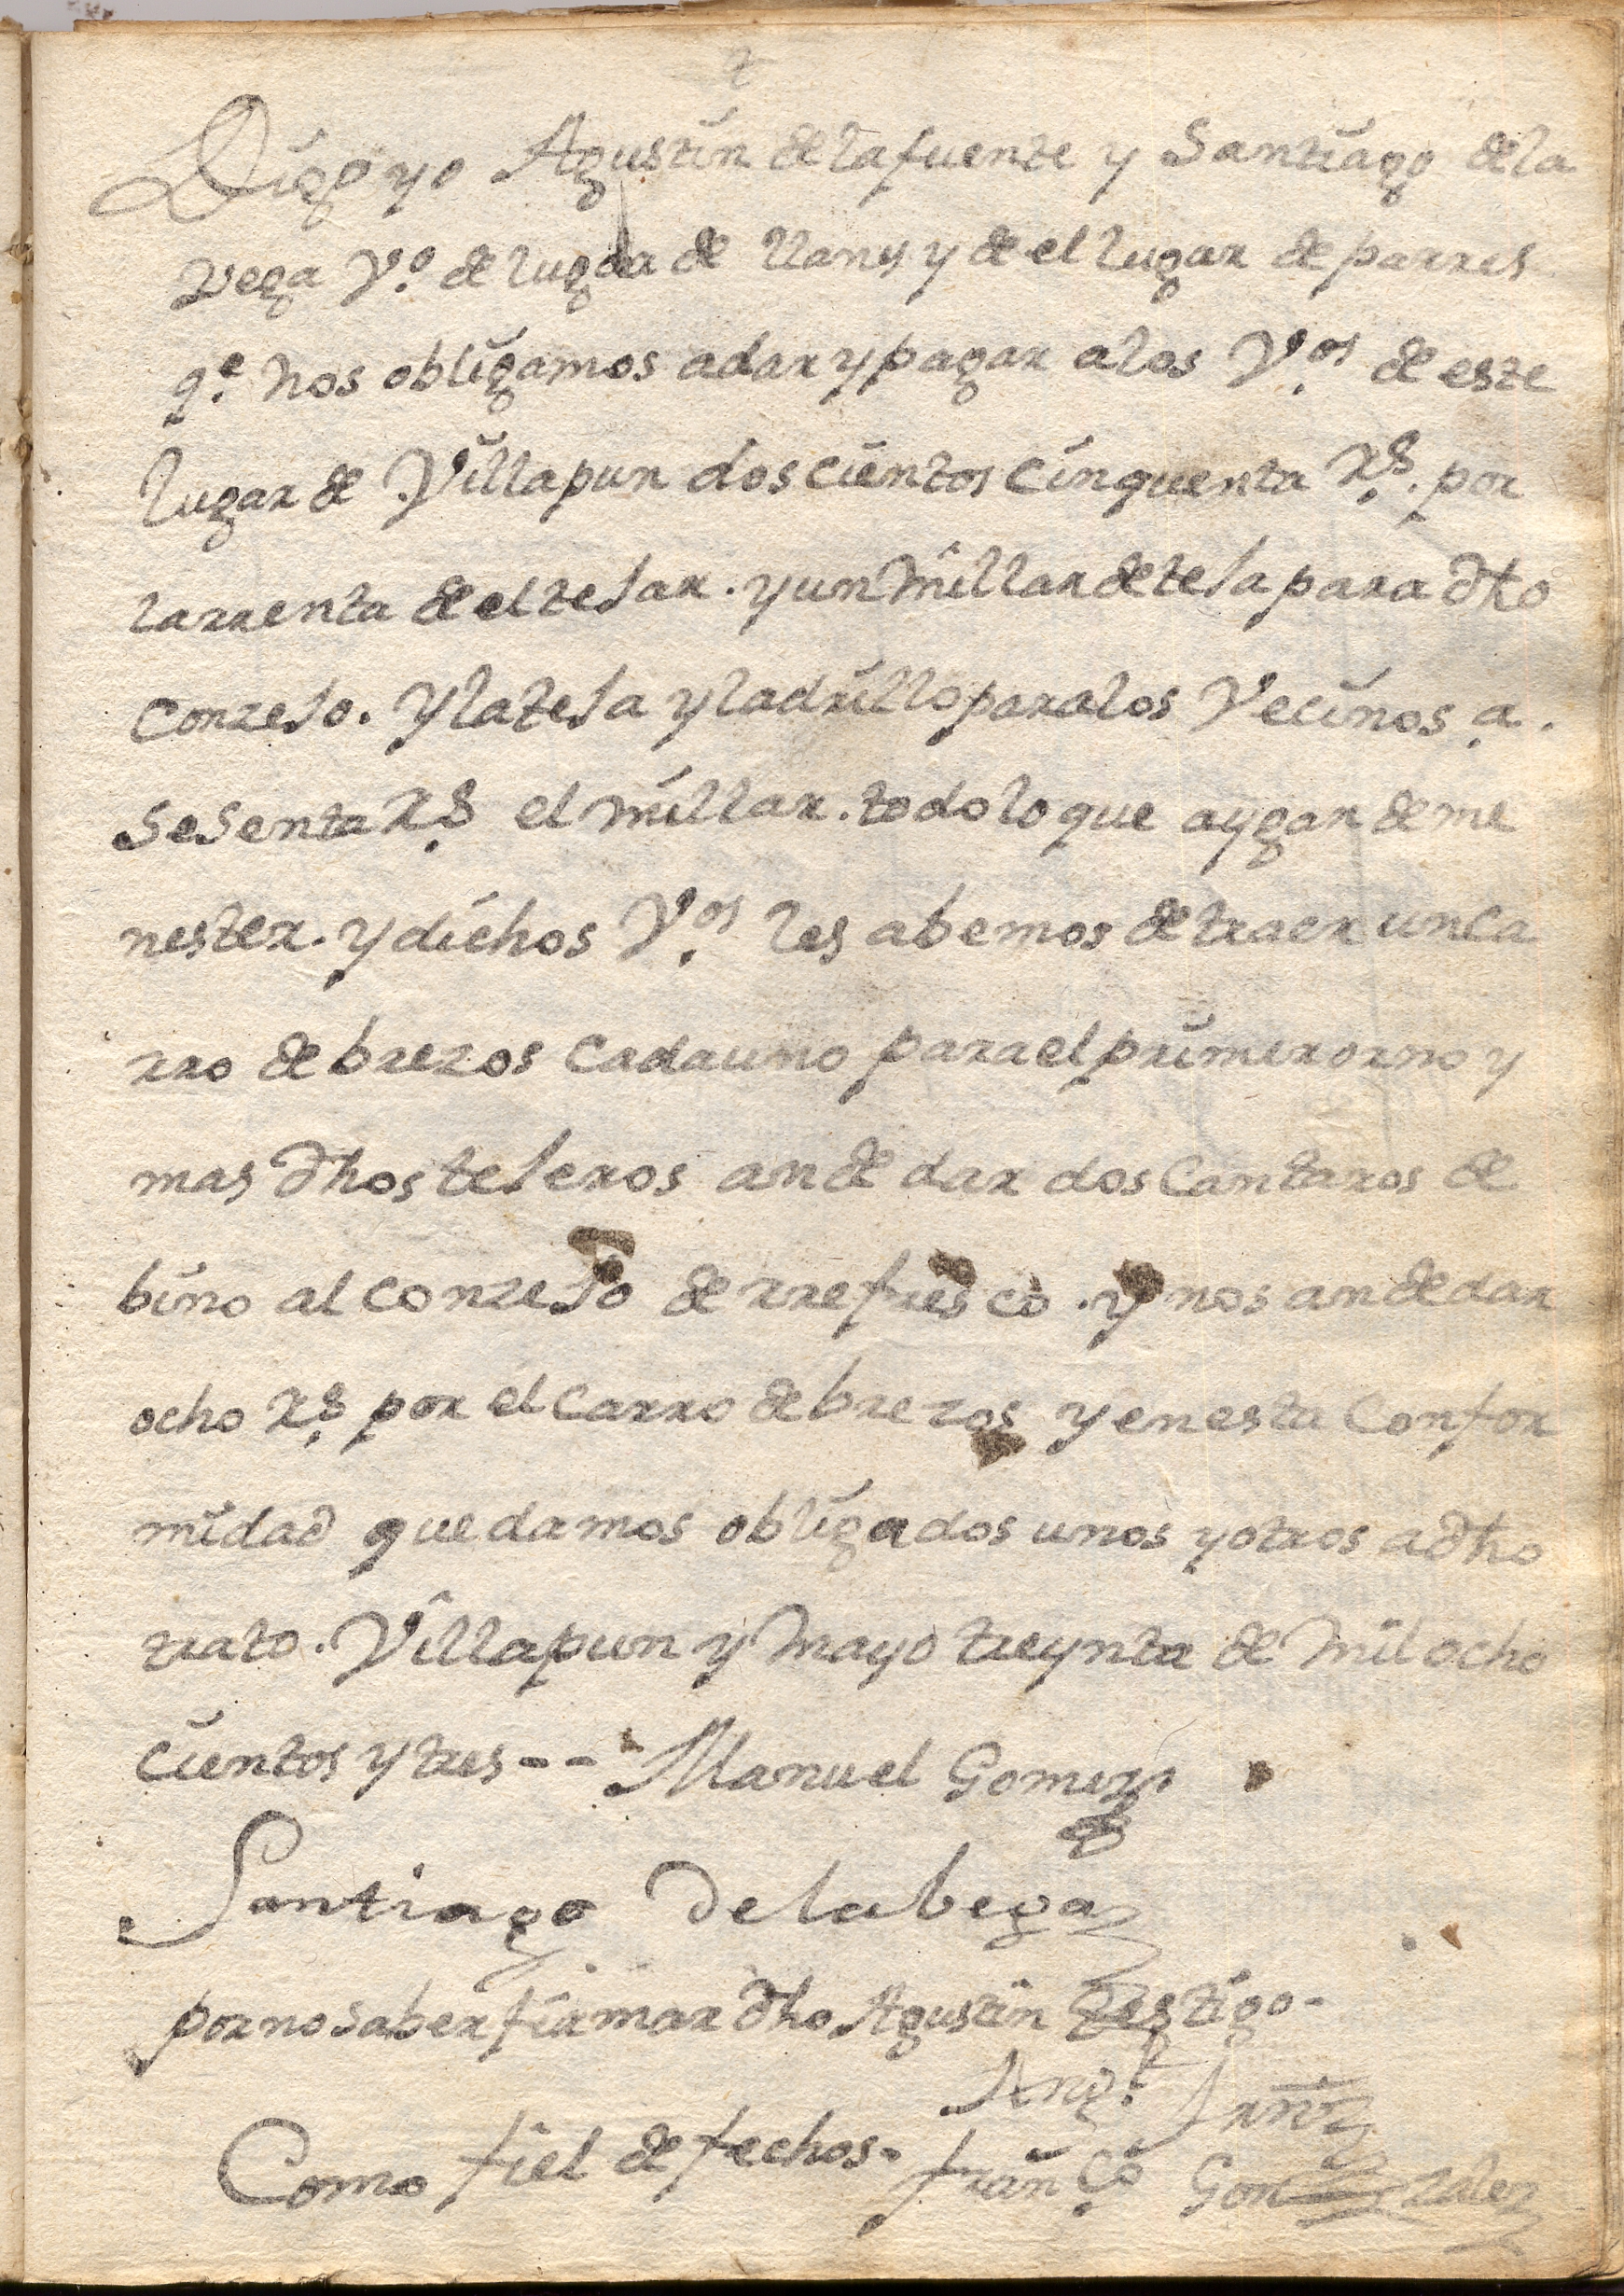 Digo yo Agustin de la fuente y Santiago de la
vega Vº de lugar de llanes y de el lugar de parres
qe nos obligamos a dar y pagar a los Vos de este
lugar de Villapun dos cientos cinquenta Rs. por
la rrenta de el tejar. y un millar de teja para dho
Conzejo. y la teja y ladrillo para los Vecinos a.
Sesenta Rs el millar. todo lo que aygan de me
nester. y dichos Vos les abemos de traer un ca
rro de brezos cada uno para el primer orno y
mas dhos tejeros an de dar dos Cantaros de
bino al conzejo de rrefresco. y nos an de dar
ocho Rs por el Carro de brezos y en esta Confor
midad quedamos obligados unos y otros a dho
trato. Villapun y Mayo treynta de mil ocho
cientos y tres -- Manuel Gomez
Santiago de la bega
por no saber firmar dho Agustin testigo-
Como fiel de fechos- franco Gonzalez